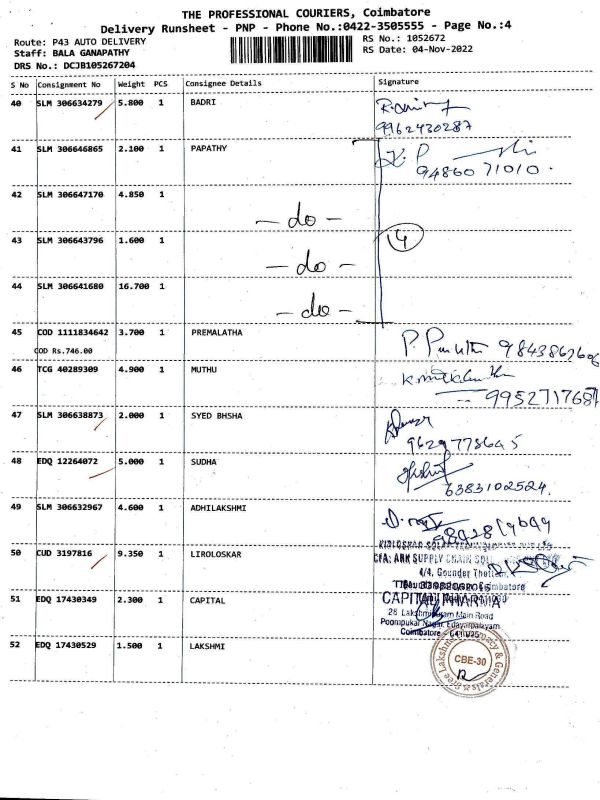 THE PROFESSIONAL COURIERS, Coimbatore
Delivery Runsheet - PNP - Phone No.:0422-3505555 - Page No.:4
Route: P43 AUTO DELIVERY RS No.: 1052672
Staff: BALA GANAPATHY RS Date: 04-Nov-2022
DRS No.: DCJB105267204
S No Consignment No Weight PCS Consignee Details Signature
40 SLM 306634279 5.800 1 BADRI
9962430287
41 SLM 306646865 2.100 1 PAPATHY K. P
9486071010.
42 SLM 306647170 4.850 1
- do -
43 SLM 306643796 1.600 1 4
- do -
44 SLM 306641680 16.700 1
- do -
45 COD 1111834642 3.700 1 PREMALATHA
COD Rs.746.00
46 TCG 40289309 4.900 1 MUTHU
9952717687
47 SLM 306638873 2.000 1 SYED BHSHA
48 EDQ 12264072 5.000 1 SUDHA
6383102524.
49 SLM 306632967 4.600 1 ADHILAKSHMI
50 CUD 3197816 9.350 1 LIROLOSKAR
CFA: ARK SUPPLY CHAIN
4/4, Gounder
51 EDQ 17430349 2.300 1 CAPITAL
CAPITAL PHARMA
Main Road
Coimbatore
52 EDQ 17430529 1.500 1 LAKSHMI
CBE-30